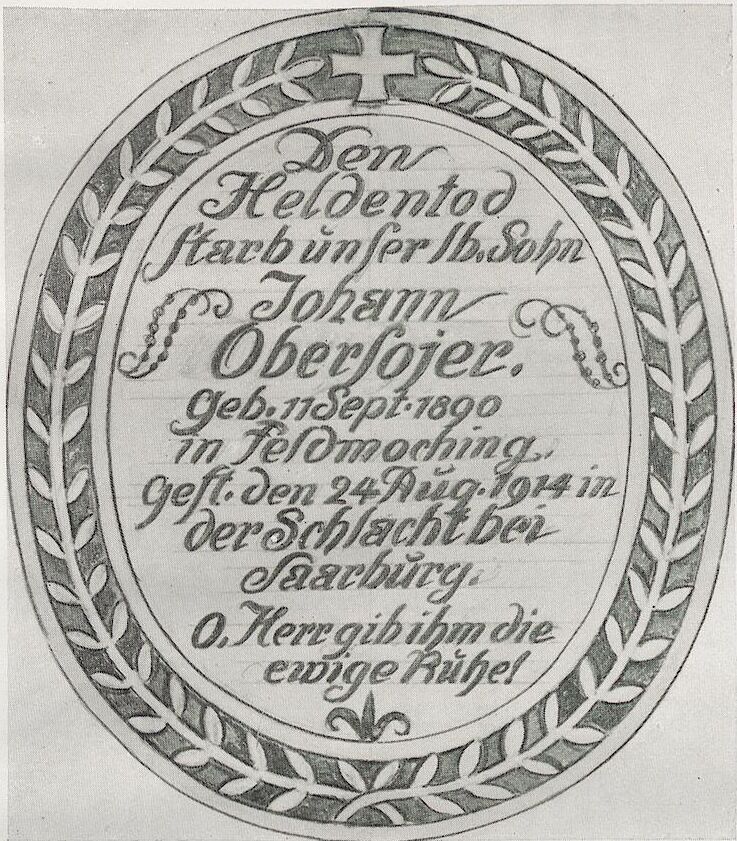 Den
Heldentod
starb unser lb. Sohn
Johann
Obersojer.
Geb. 11 Sept. 1890
in Feldmoching.
Gest. den 24 Aug. 1914 in
der Schlacht bei
Saarburg.
O, Herr gib ihm die
ewige Ruhe!